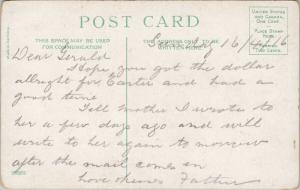 POST CARD
UNITED STATES
AND CANADA,
ONE CENT.
PLACE STAMP
HERE
TWO CENTS.
THIS SPACE MAY BE USED
FOR COMMUNICATION
THE ADDRESS ONLY TO BE
WRITTEN HERE
16/
Dear Gerald
Hope you got the dollar
allright for Easter and had a
good time
Tell mother I wrote to
her a few days ago and will
write to her again to morrow
after the mail comes in
love
Father